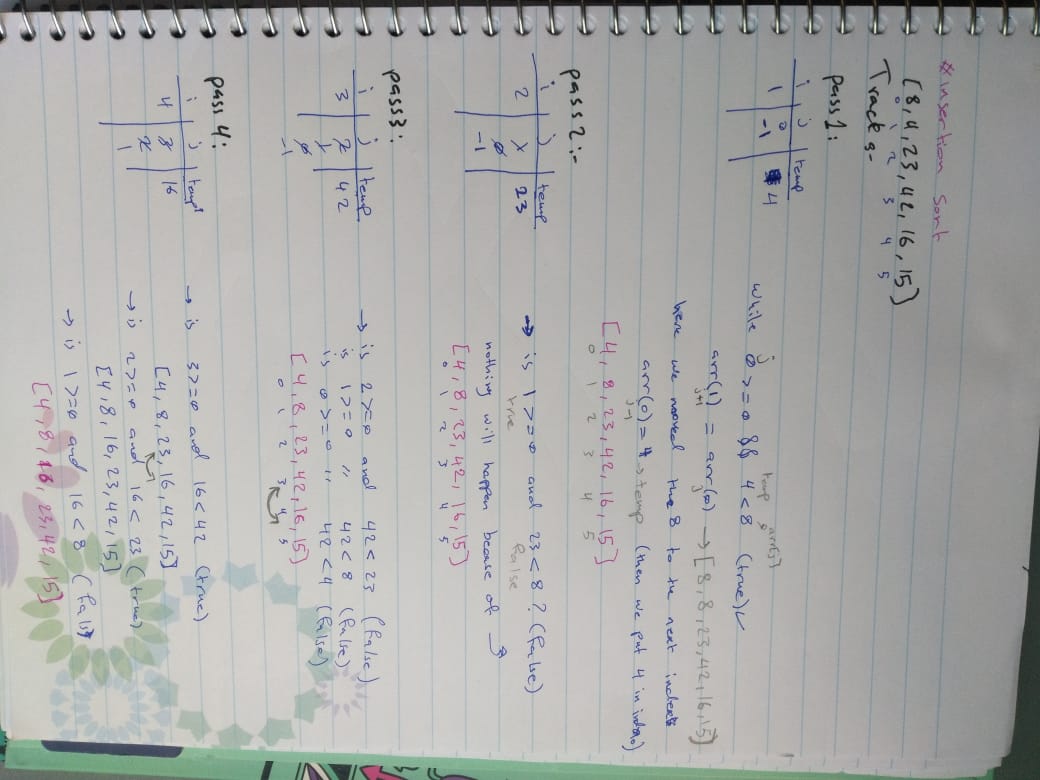 *insertion Sort
[8,4,23,42,16,15]
0 1 2 3 4 5
Track:-
pass1:
i j temp
1 0 4
-1
while 0>=0 && 4<8 (true)
j temp arr[j]
arr(1) = arr(0) → [8,8,23,42,16,15]
j+1 j
here we moved the 8 to the next index
arr(0) = 4 → temp (then we put 4 in index0)
j-1
[4,8,23,42,16,15]
0 1 2 3 4 5
pass2:-
i j temp
2 23
0
-1
→ is 1>=0 and 23<8? (false)
true false
nothing will happen because of
[4,8,23,42,16,15]
0 1 2 3 4 5
pass3:
i j temp
3 2 42
1 0
-1
→ is 2>=0 and 42<23 (false)
is 1>=0 " 42<8 (false)
is 0>=0 " 42<4 (false)
[4,8,23,42,16,15]
0 1 2 3 4 5
pass 4:
i j temp
4 3 16
2
1
→ is 3>=0 and 16<42 (true)
[4,8,23,16,42,15]
→ is 2>=0 and 16<23 (true)
[4,8,16,23,42,15]
→ is 1>=0 and 16<8 (false
[4,8,16,23,42,15]